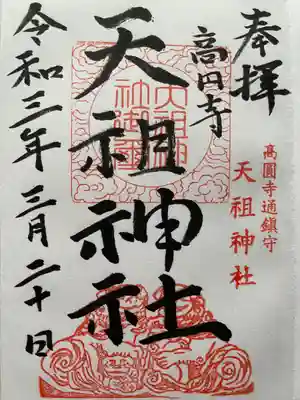 奉拝
高圓寺通鎮守
天祖神社
高円寺
天祖神社
天祖神社御璽
令和三年三月二十日